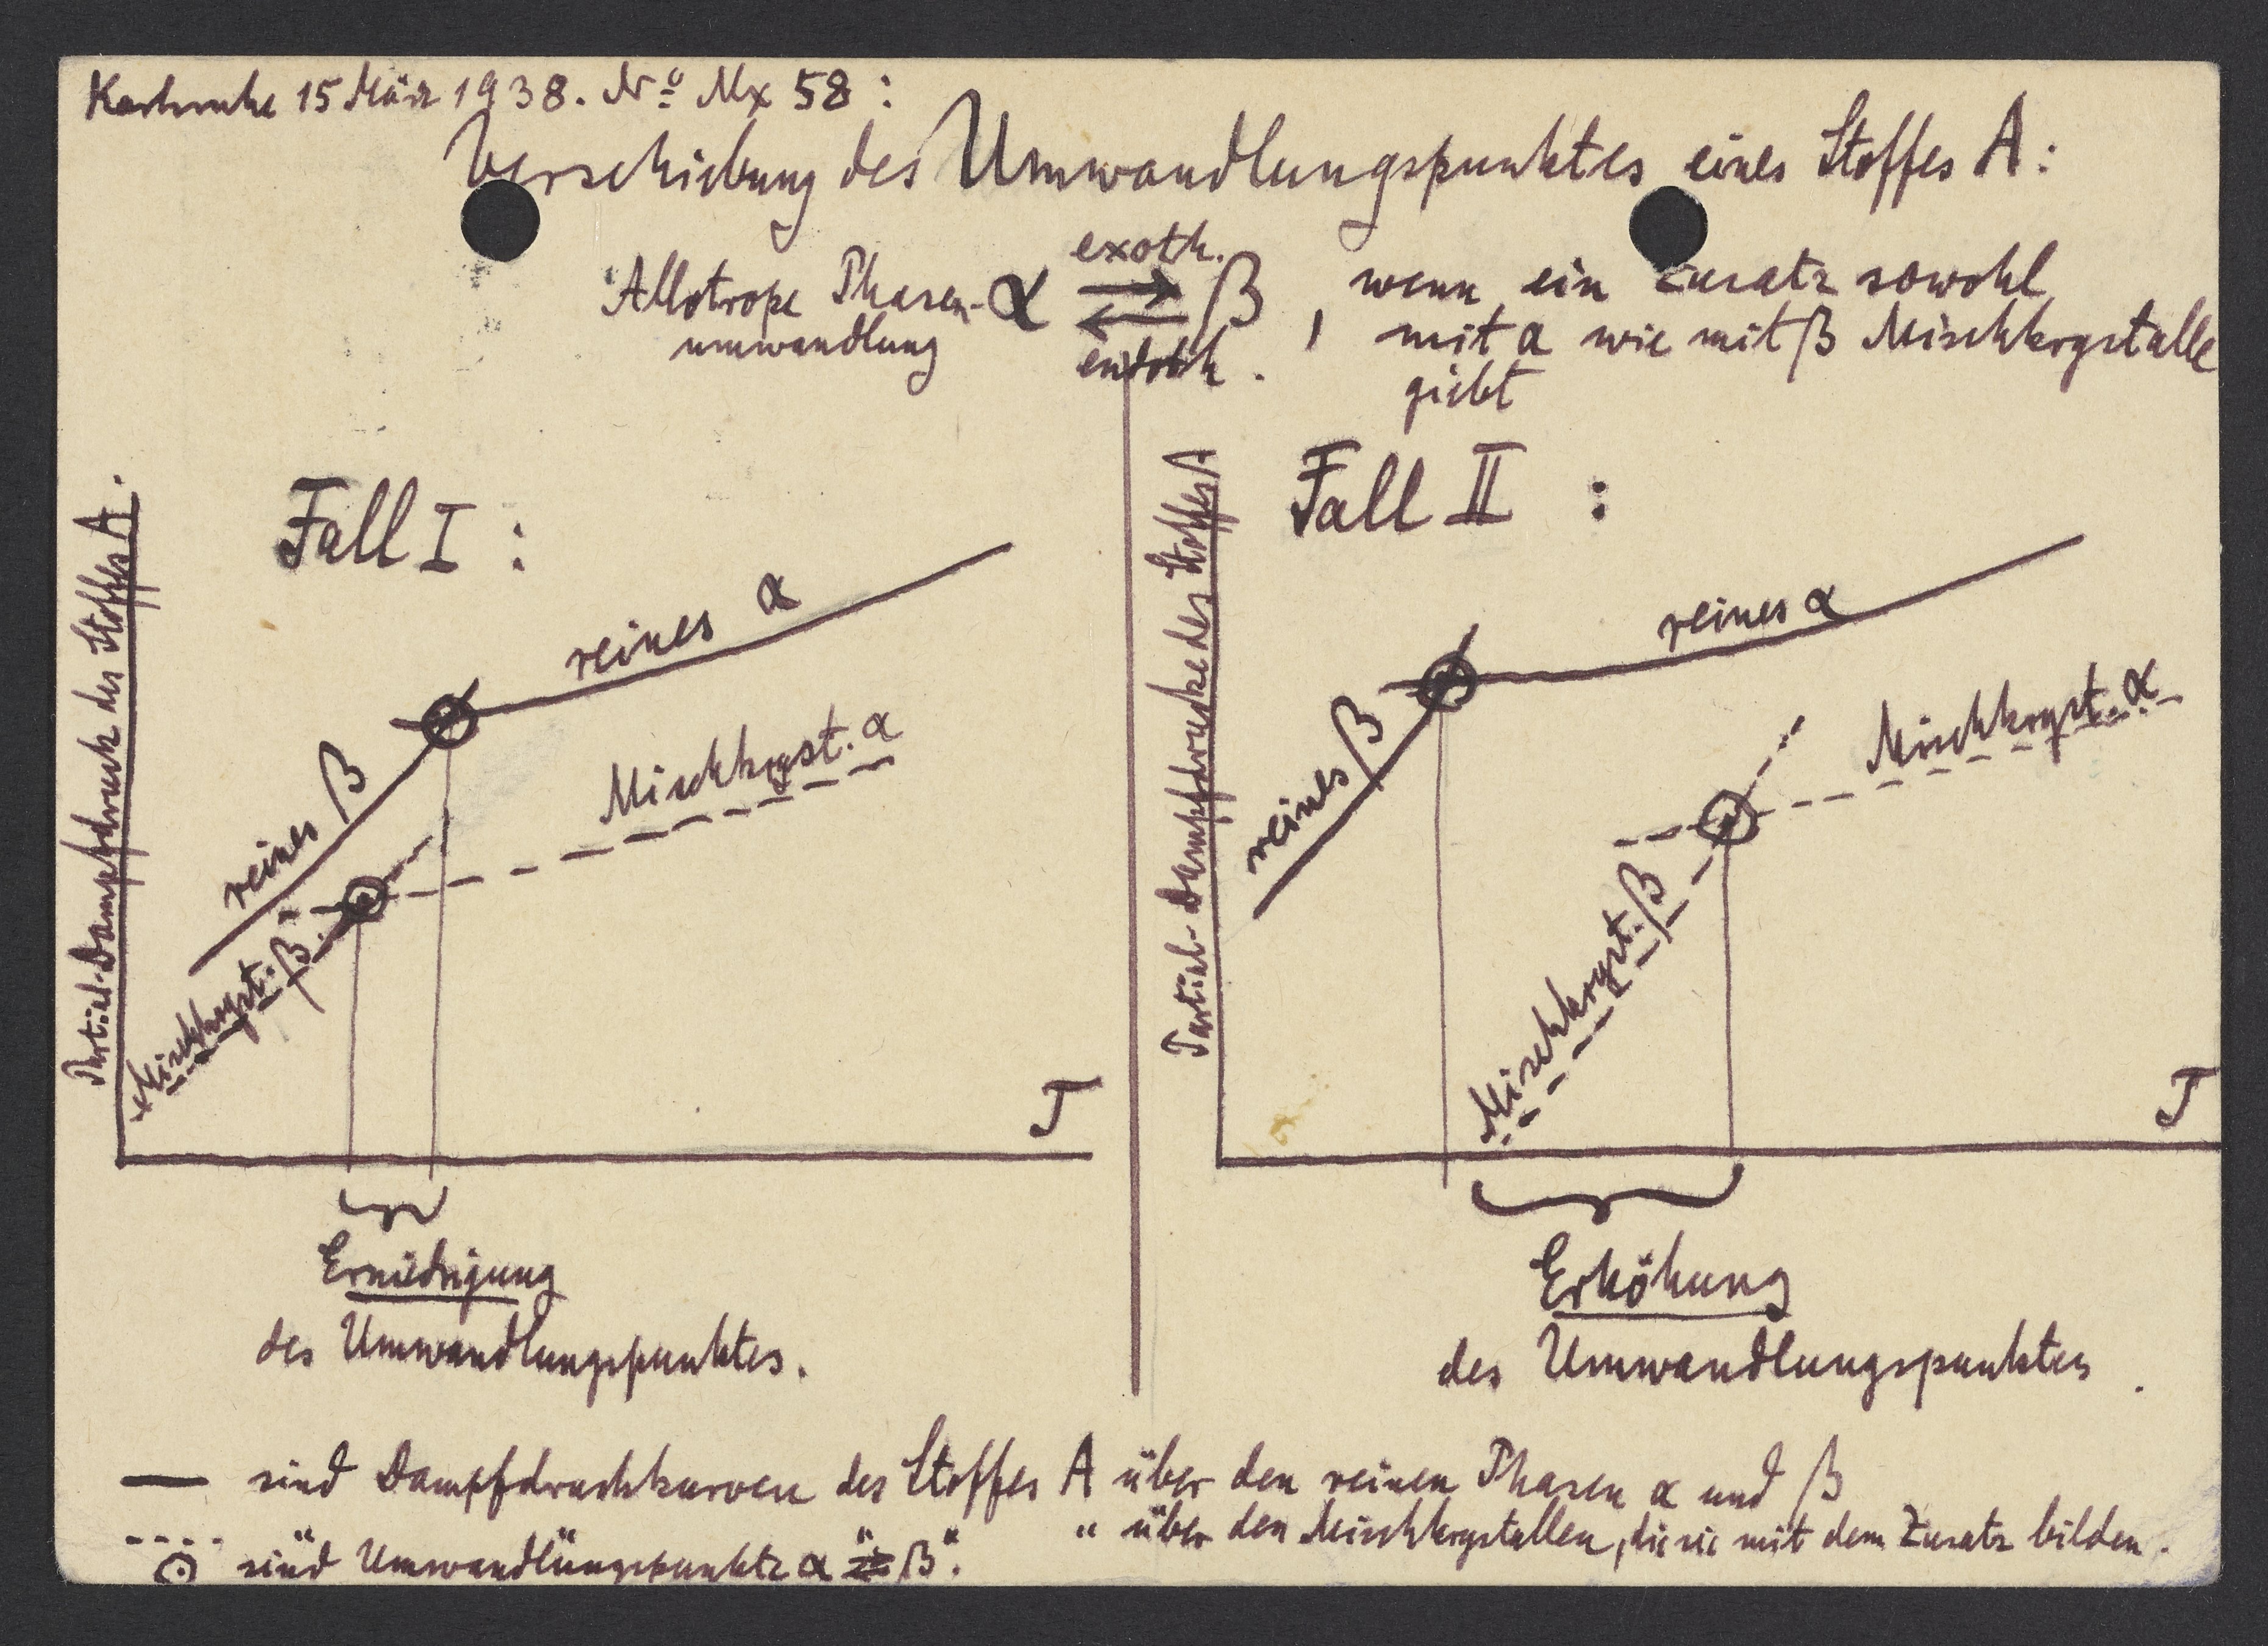 Karlsruhe 15 März 1938. Nº Mx 58:
Verschiebung des Umwandlungspunktes eines Stoffes A:
Allotrope Phasen-
umwandlung
exoth.
α ⇄ β
endoth.
, wenn ein Zusatz sowohl
mit α wie mit β Mischkrystalle
giebt
Fall I:
Partial-Dampfdruck des Stoffes A.
reines α
reines β
Mischkryst. α
Mischkryst. β
T
Erniedrigung
des Umwandlungspunktes.
Fall II:
Partial-Dampfdrucke des Stoffes A
reines α
reines β
Mischkryst. α
Mischkryst. β
T
Erhöhung
des Umwandlungspunktes.
— sind Dampfdruckkurven des Stoffes A über den reinen Phasen α und β
---- " " " " über den Mischkrystallen, die sie mit dem Zusatz bilden.
⊙ sind Umwandlungspunkte α ⇄ β.